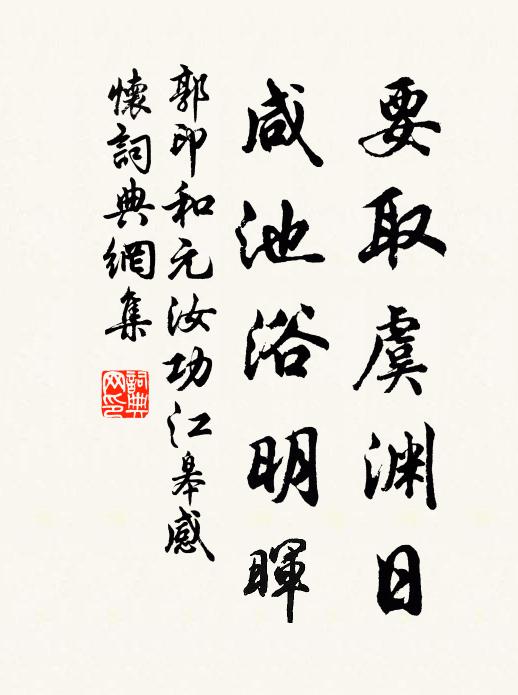 要取虞渊日
咸池浴明暉
郭印和元汝功江皋感
懷詞典網集
詞典
网印